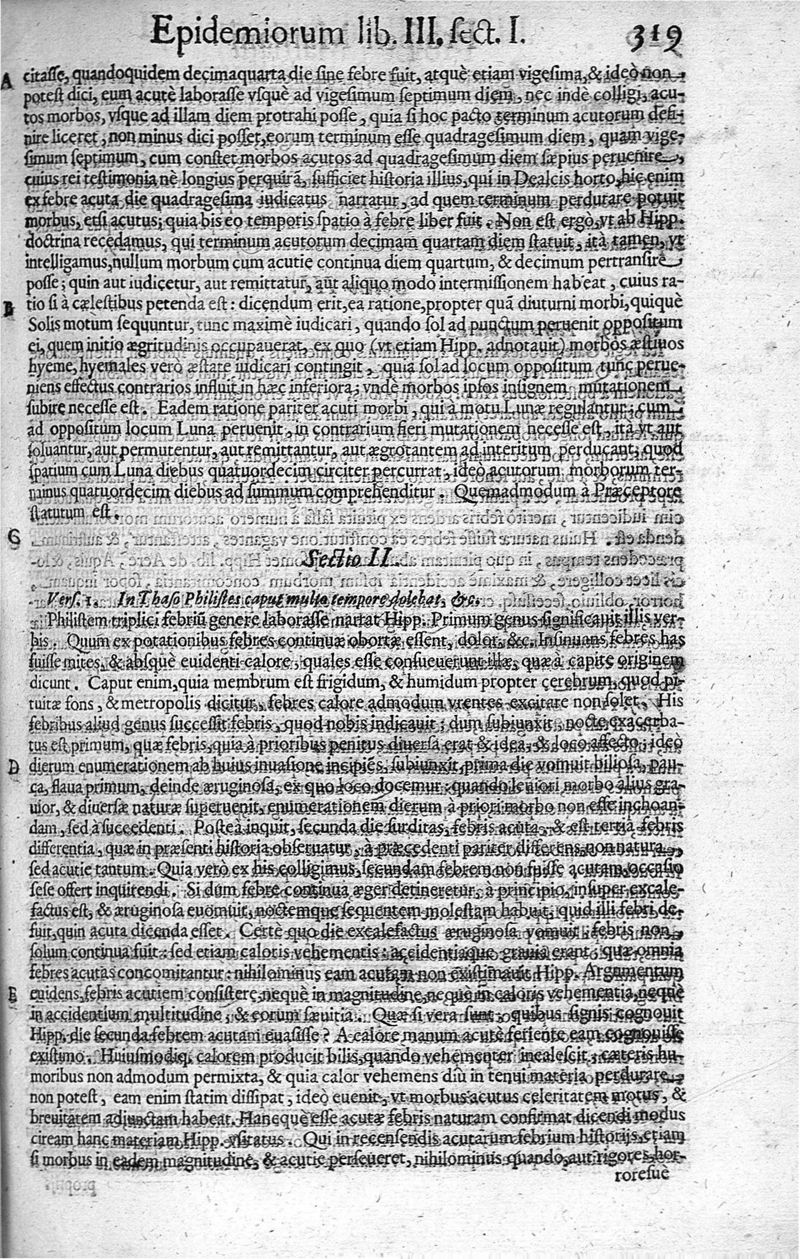 Epidemiorum lib. III. sect. I. 319
A citasse, quandoquidem decimaquarta die sine febre fuit, atquè etiam vigesima, & ideò non
potest dici, eum acutè laborasse vsquè ad vigesimum septimum diem, nec indè colligi, acu-
tos morbos, vsque ad illam diem protrahi posse, quia si hoc pacto terminum acutorum defi-
nire liceret; non minus dici posset, eorum terminum esse quadragesimum diem, quam vige-
simum septimum, cum constet morbos acutos ad quadragesimum diem sæpius peruenire,
cuius rei testimonia nè longius perquirā, sufficiet historia illius, qui in Dealcis horto, hic enim
ex febre acuta die quadragesima iudicatus narratur, ad quem terminum perdurare potuit
morbus, etsi acutus; quia bis eo temporis spatio à febre liber fuit. Non est ergò, vt ab Hipp.
doctrina recedamus, qui terminum acutorum decimam quartam diem statuit, ità tamen, vt
intelligamus, nullum morbum cum acutie continua diem quartum, & decimum pertransire
posse; quin aut iudicetur, aut remittatur, aut aliquo modo intermissionem habeat, cuius ra-
B tio si à cælestibus petenda est: dicendum erit, ea ratione, propter quā diuturni morbi, quiquè
Solis motum sequuntur, tunc maximè iudicari, quando sol ad punctum peruenit oppositum
ei, quem initio ægritudinis occupauerat, ex quo (vt etiam Hipp. adnotauit) morbos æstiuos
hyeme, hyemales verò æstate iudicari contingit, quia sol ad locum oppositum tunc perue-
niens effectus contrarios influit in hæc inferiora; vndè morbos ipsos insignem mutationem
subire necesse est. Eadem ratione pariter acuti morbi, qui à motu Lunæ regulantur; cum
ad oppositum locum Luna peruenit, in contrarium fieri mutationem necesse est, ità vt aut
soluantur, aut permutentur, aut remittantur, aut ægrotantem ad interitum perducant; quod
spatium cum Luna diebus quatuordecim circiter percurrat, ideò acutorum morborum ter-
minus quatuordecim diebus ad summum comprehenditur. Quemadmodum à Præceptore
statutum est.
C
Sectio II.
Vers. 1. In Thaso Philistes caput multo tempore dolebat, &c.
Philistem triplici febriū genere laborasse narrat Hipp. Primum genus significauit illis ver-
bis. Quum ex potationibus febres continuæ obortæ essent, dolor, &c. Insinuans febres has
fuisse mites, & absquè euidenti calore, quales esse consueuerunt illæ, quæ à capite originem
dicunt. Caput enim, quia membrum est frigidum, & humidum propter cerebrum, quod pi-
tuitæ fons, & metropolis dicitur, febres calore admodum vrentes excitare non solet, His
febribus aliud genus successit febris, quod nobis indicauit; dum subiunxit, nocte exacerba-
tus est primum, quæ febris, quia à prioribus penitus diuersa erat & idea, & loco affecto, ideò
D dierum enumerationem ab huius inuasione incipiēs, subiunxit, prima die vomuit biliosa, pau-
ca, flaua primum, deinde æruginosa, ex quo loco docemur: quando leuiori morbo alius gra-
uior, & diuersæ naturæ superuenit, enumerationem dierum à priori morbo non esse inchoan-
dam, sed à succedenti. Posteà inquit, secunda die surditas, febris acuta, & est tertia febris
differentia, quæ in præsenti historia obseruatur, à præcedenti pariter differens non natura,
sed acutie tantum. Quia verò ex his colligimus, secundam febrem non fuisse acutam occasio
sese offert inquirendi. Si dum febre continua æger detineretur, à principio, insuper excale-
factus est, & æruginosa euomuit, noctemque sequentem molestam habuit, quid illi febri de-
fuit, quin acuta dicenda esset. Certè quo die excalefactus æruginosa vomuit febris non
solum continua fuit: sed etiam caloris vehementis: accidentiaque grauia erant quæ omnia
febres acutas concomitantur: nihilominus eam acutam non existimauit Hipp. Argumentum
E euidens, febris acutiem consistere nequè in magnitudine, neque in caloris vehementia, nequè
in accidentium multitudine, & eorum sæuitia. Quæ si vera sunt, quibus signis cognouit
Hipp. die secunda febrem acutam euasisse? A calore manum acutè feriente eam cognouisse
existimo. Huiusmodiq; calorem producit bilis, quando vehementer incalescit, cæteris hu-
moribus non admodum permixta, & quia calor vehemens diù in tenui materia perdurare
non potest, eam enim statim dissipat, ideò euenit, vt morbus acutus celeritatem motus, &
breuitatem adiunctam habeat. Hancquè esse acutæ febris naturam confirmat dicendi modus
circam hanc materiam Hipp. vsitatus. Qui in recensendis acutarum febrium historijs, etiam
si morbus in eadem magnitudine, & acutie perseueret, nihilominus quando, aut rigores hor-
roresuè